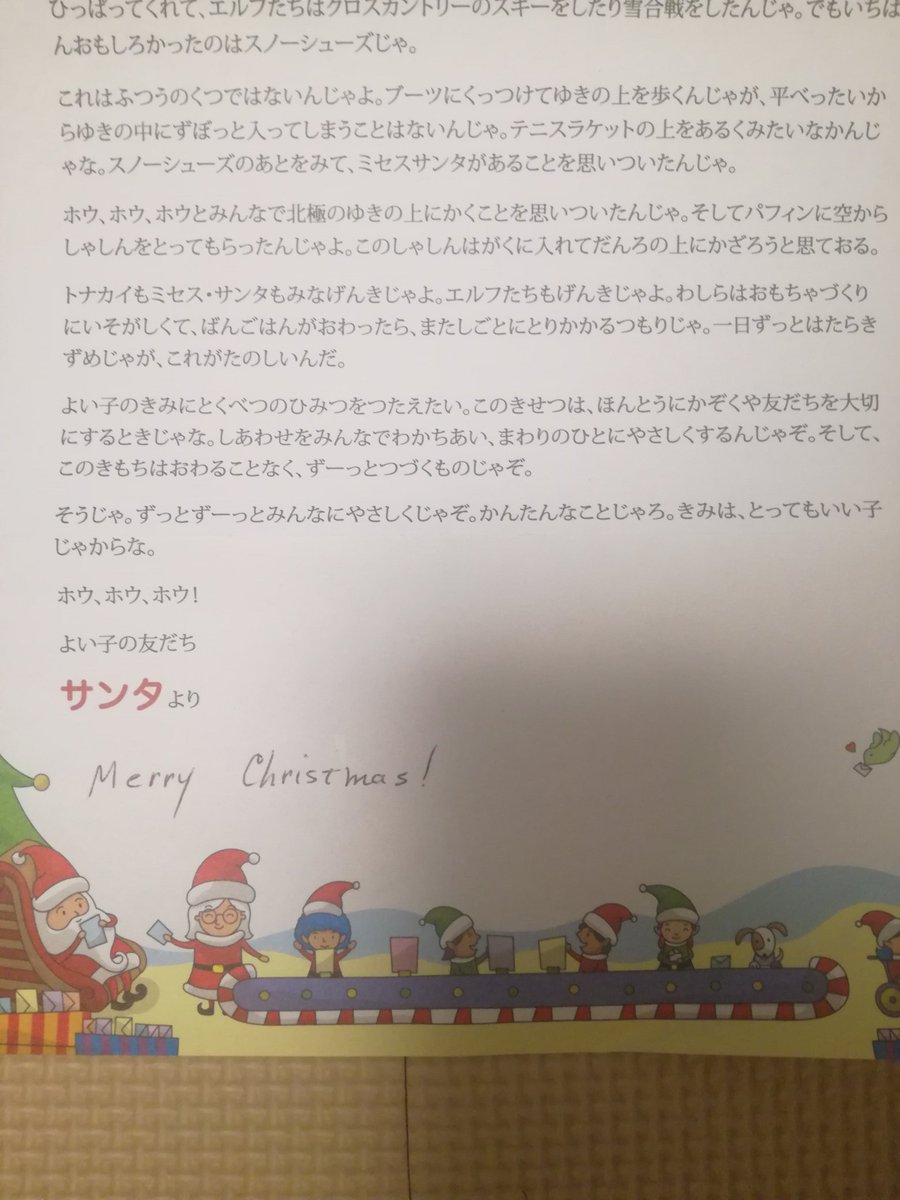 ひっぱってくれて、エルフたちはクロスカントリーのスキーをしたり雪合戦をしたんじゃ。でもいちば
んおもしろかったのはスノーシューズじゃ。
これはふつうのくつではないんじゃよ。ブーツにくっつけてゆきの上を歩くんじゃが、平べったいか
らゆきの中にずぼっと入ってしまうことはないんじゃ。テニスラケットの上をあるくみたいなかんじ
ゃな。スノーシューズのあとをみて、ミセスサンタがあることを思いついたんじゃ。
ホウ、ホウ、ホウとみんなで北極のゆきの上にかくことを思いついたんじゃ。そしてパフィンに空から
しゃしんをとってもらったんじゃよ。このしゃしんはがくに入れてだんろの上にかざろうと思ておる。
トナカイもミセス・サンタもみなげんきじゃよ。エルフたちもげんきじゃよ。わしらはおもちゃづくり
にいそがしくて、ばんごはんがおわったら、またしごとにとりかかるつもりじゃ。一日ずっとはたらき
ずめじゃが、これがたのしいんだ。
よい子のきみにとくべつのひみつをつたえたい。このきせつは、ほんとうにかぞくや友だちを大切
にするときじゃな。しあわせをみんなでわかちあい、まわりのひとにやさしくするんじゃぞ。そして、
このきもちはおわることなく、ずーっとつづくものじゃぞ。
そうじゃ。ずっとずーっとみんなにやさしくじゃぞ。かんたんなことじゃろ。きみは、とってもいい子
じゃからな。
ホウ、ホウ、ホウ!
よい子の友だち
サンタより
Merry Christmas!